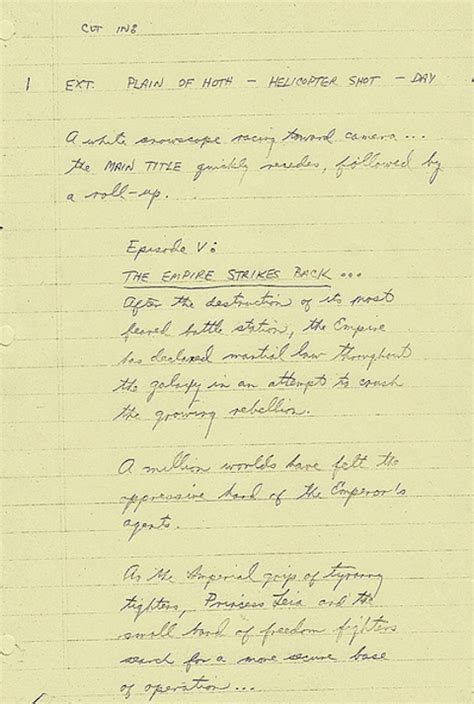 CUT IN:
1 EXT. PLAIN OF HOTH - HELICOPTER SHOT - DAY
A white snowscape racing toward camera...
the MAIN TITLE quickly recedes, followed by
a roll-up.
Episode V:
THE EMPIRE STRIKES BACK ...
After the destruction of its most
feared battle station, the Empire
has declared martial law throughout
the galaxy in an attempt to crush
the growing rebellion.
A million worlds have felt the
oppressive hand of the Emperor's
agents.
As the Imperial grip of tyranny
tightens, Princess Leia and the
small band of freedom fighters
search for a more secure base
of operation...